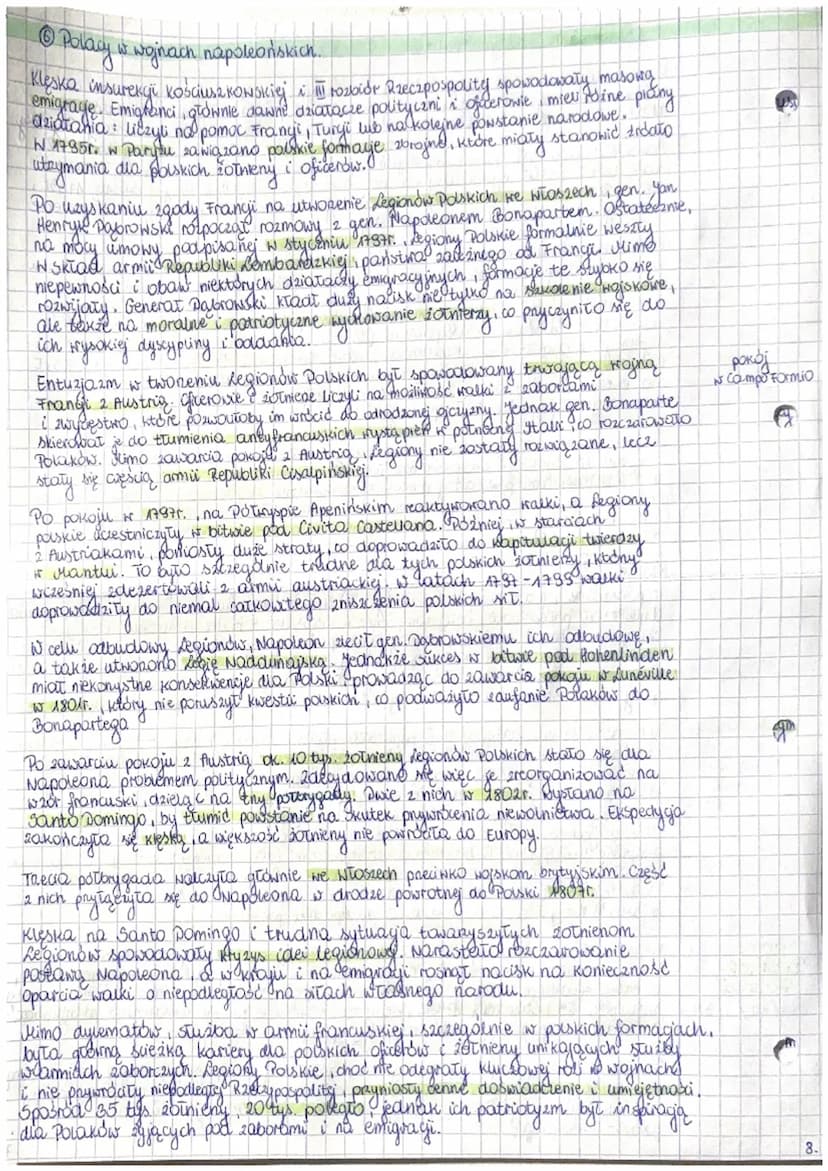 ⑥ Polacy w wojnach napoleońskich.
Klęska insurekcji kościuszkowskiej i III rozbiór Rzeczpospolitej spowodowały masową
emigrację. Emigranci, głównie dawni działacze polityczni i oficerowie, mieli różne plany
działania: liczyli na pomoc Francji, Turcji lub na kolejne powstanie narodowe.
W 1795r. w Paryżu zawiązano polskie formacje zbrojne, które miały stanowić źródło
utrzymania dla polskich żołnierzy i oficerów.
Po uzyskaniu zgody Francji na utworzenie Legionów Polskich we Włoszech, gen. Jan
Henryk Dąbrowski rozpoczął rozmowy z gen. Napoleonem Bonapartem. Ostatecznie,
na mocy umowy podpisanej w styczniu 1797r., Legiony Polskie formalnie weszły
w skład armii Republiki Lombardzkiej, państwa zależnego od Francji. Mimo
niepewności i obaw niektórych działaczy emigracyjnych, formacje te szybko się
rozwijały. Generał Dąbrowski kładł duży nacisk nie tylko na szkolenie wojskowe,
ale także na moralne i patriotyczne wychowanie żołnierzy, co przyczyniło się do
ich wysokiej dyscypliny i oddania.
Entuzjazm w tworzeniu Legionów Polskich był spowodowany trwającą wojną
Francji z Austrią. Oficerowie i żołnierze liczyli na możliwość walki z zaborcami
i zwycięstwo, które pozwoliłoby im wrócić do odrodzonej ojczyzny. Jednak gen. Bonaparte
skierował je do tłumienia antyfrancuskich wystąpień w północnej Italii, co rozczarowało
Polaków. Mimo zawarcia pokoju z Austrią, Legiony nie zostały rozwiązane, lecz
stały się częścią armii Republiki Cisalpińskiej.
pokój
w Campo Formio
Po pokoju w 1797r., na Półwyspie Apenińskim reaktywowano walki, a Legiony
polskie uczestniczyły w bitwie pod Civita Castellana. Później, w starciach
z Austriakami, poniosły duże straty, co doprowadziło do kapitulacji twierdzy
w Mantui. To było szczególnie trudne dla tych polskich żołnierzy, którzy
wcześniej zdezerterowali z armii austriackiej. W latach 1797-1799 walki
doprowadziły do niemal całkowitego zniszczenia polskich sił.
W celu odbudowy Legionów, Napoleon zlecił gen. Dąbrowskiemu ich odbudowę,
a także utworzono Legię Naddunajską. Jednakże sukces w bitwie pod Hohenlinden
miał niekorzystne konsekwencje dla Polski, prowadząc do zawarcia pokoju w Lunéville
w 1801r., który nie poruszył kwestii polskich, co podważyło zaufanie Polaków do
Bonapartego
Po zawarciu pokoju z Austrią ok. 10 tys. żołnierzy Legionów Polskich stało się dla
Napoleona problemem politycznym. Zdecydowano się więc je zreorganizować na
wzór francuski, dzieląc na trzy półbrygady. Dwie z nich w 1802r. wysłano na
Santo Domingo, by tłumić powstanie na skutek przywrócenia niewolnictwa. Ekspedycja
zakończyła się klęską, a większość żołnierzy nie powróciła do Europy.
Trzecia półbrygada walczyła głównie we Włoszech przeciwko wojskom brytyjskim. Część
z nich przyłączyła się do Napoleona w drodze powrotnej do Polski 1807r.
Klęska na Santo Domingo i trudna sytuacja towarzyszyłych żołnierzom
Legionów spowodowały kryzys idei legionowej. Narastało rozczarowanie
postawą Napoleona, a w kraju i na emigracji rosnął nacisk na konieczność
oparcia walki o niepodległość na siłach własnego narodu.
Mimo dylematów, służba w armii francuskiej, szczególnie w polskich formacjach,
była główną ścieżką kariery dla polskich oficerów i żołnierzy unikających służby
w armiach zaborczych. Legiony Polskie, choć nie odegrały kluczowej roli w wojnach
i nie przywróciły niepodległej Rzeczypospolitej, przyniosły cenne doświadczenie i umiejętności.
Spośród 35 tys. żołnierzy, 20 tys. poległo, jednak ich patriotyzm był inspiracją
dla Polaków żyjących pod zaborami i na emigracji.
8.